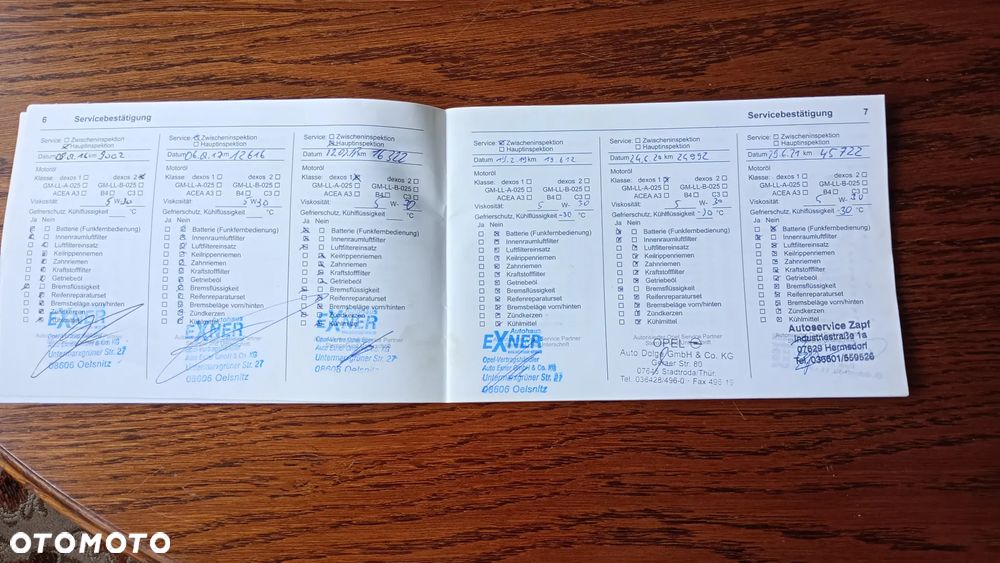 6 Servicebestätigung
Service: Zwischeninspektion
Hauptinspektion
Datum km 9002
Motoröl
Klasse: dexos 1 dexos 2
GM-LL-A-025 GM-LL-B-025
ACEA A3 B4 C3
Viskosität: 5 W-30
Gefrierschutz, Kühlflüssigkeit °C
Ja Nein
Batterie (Funkfernbedienung)
Innenraumluftfilter
Luftfiltereinsatz
Keilrippenriemen
Zahnriemen
Kraftstofffilter
Getriebeöl
Bremsflüssigkeit
Reifenreparaturset
Bremsbeläge vorn/hinten
Zündkerzen
EXNER
Untermarxgrüner Str. 27
08606 Oelsnitz
Service: Zwischeninspektion
Hauptinspektion
Datum km 12616
Motoröl
Klasse: dexos 1 dexos 2
GM-LL-A-025 GM-LL-B-025
ACEA A3 B4 C3
Viskosität: 5 W30
Gefrierschutz, Kühlflüssigkeit °C
Ja Nein
Batterie (Funkfernbedienung)
Innenraumluftfilter
Luftfiltereinsatz
Keilrippenriemen
Zahnriemen
Kraftstofffilter
Getriebeöl
Bremsflüssigkeit
Reifenreparaturset
Bremsbeläge vorn/hinten
Zündkerzen
EXNER
Auto Exner GmbH & Co. KG
Untermarxgrüner Str. 27
08606 Oelsnitz
Service: Zwischeninspektion
Hauptinspektion
Datum km 16322
Motoröl
Klasse: dexos 1 dexos 2
GM-LL-A-025 GM-LL-B-025
ACEA A3 B4 C3
Viskosität: 5 W- 30
Gefrierschutz, Kühlflüssigkeit °C
Ja Nein
Batterie (Funkfernbedienung)
Innenraumluftfilter
Luftfiltereinsatz
Keilrippenriemen
Zahnriemen
Kraftstofffilter
Getriebeöl
Bremsflüssigkeit
Reifenreparaturset
Bremsbeläge vorn/hinten
Zündkerzen
Kühlmittel
EXNER
Auto Exner GmbH & Co. KG
Untermarxgrüner Str. 27
08606 Oelsnitz
Servicebestätigung 7
Service: Zwischeninspektion
Hauptinspektion
Datum 15.2.19 km 19 612
Motoröl
Klasse: dexos 1 dexos 2
GM-LL-A-025 GM-LL-B-025
ACEA A3 B4 C3
Viskosität: 5 W- 30
Gefrierschutz, Kühlflüssigkeit -30 °C
Ja Nein
Batterie (Funkfernbedienung)
Innenraumluftfilter
Luftfiltereinsatz
Keilrippenriemen
Zahnriemen
Kraftstofffilter
Getriebeöl
Bremsflüssigkeit
Reifenreparaturset
Bremsbeläge vorn/hinten
Zündkerzen
Kühlmittel
Autohaus
EXNER
Opel-Vertragshändler
Auto Exner GmbH & Co. KG
Untermarxgrüner Str. 27
08606 Oelsnitz
Service: Zwischeninspektion
Hauptinspektion
Datum 24.6.20 km 24992
Motoröl
Klasse: dexos 1 dexos 2
GM-LL-A-025 GM-LL-B-025
ACEA A3 B4 C3
Viskosität: 5 W- 30
Gefrierschutz, Kühlflüssigkeit -30 °C
Ja Nein
Batterie (Funkfernbedienung)
Innenraumluftfilter
Luftfiltereinsatz
Keilrippenriemen
Zahnriemen
Kraftstofffilter
Getriebeöl
Bremsflüssigkeit
Reifenreparaturset
Bremsbeläge vorn/hinten
Zündkerzen
Kühlmittel
OPEL
GmbH & Co. KG
Str. 80
Stadtroda/Thür.
Tel. 036428/496-0
Service: Zwischeninspektion
Hauptinspektion
Datum km 45722
Motoröl
Klasse: dexos 1 dexos 2
GM-LL-A-025 GM-LL-B-025
ACEA A3 B4 C3
Viskosität: 5 W- 30
Gefrierschutz, Kühlflüssigkeit -30 °C
Ja Nein
Batterie (Funkfernbedienung)
Innenraumluftfilter
Luftfiltereinsatz
Keilrippenriemen
Zahnriemen
Kraftstofffilter
Getriebeöl
Bremsflüssigkeit
Reifenreparaturset
Bremsbeläge vorn/hinten
Zündkerzen
Kühlmittel
Autoservice Zapf
Industriestraße 1a
07629 Hermsdorf
Tel. 036601/559526
OTOMOTO